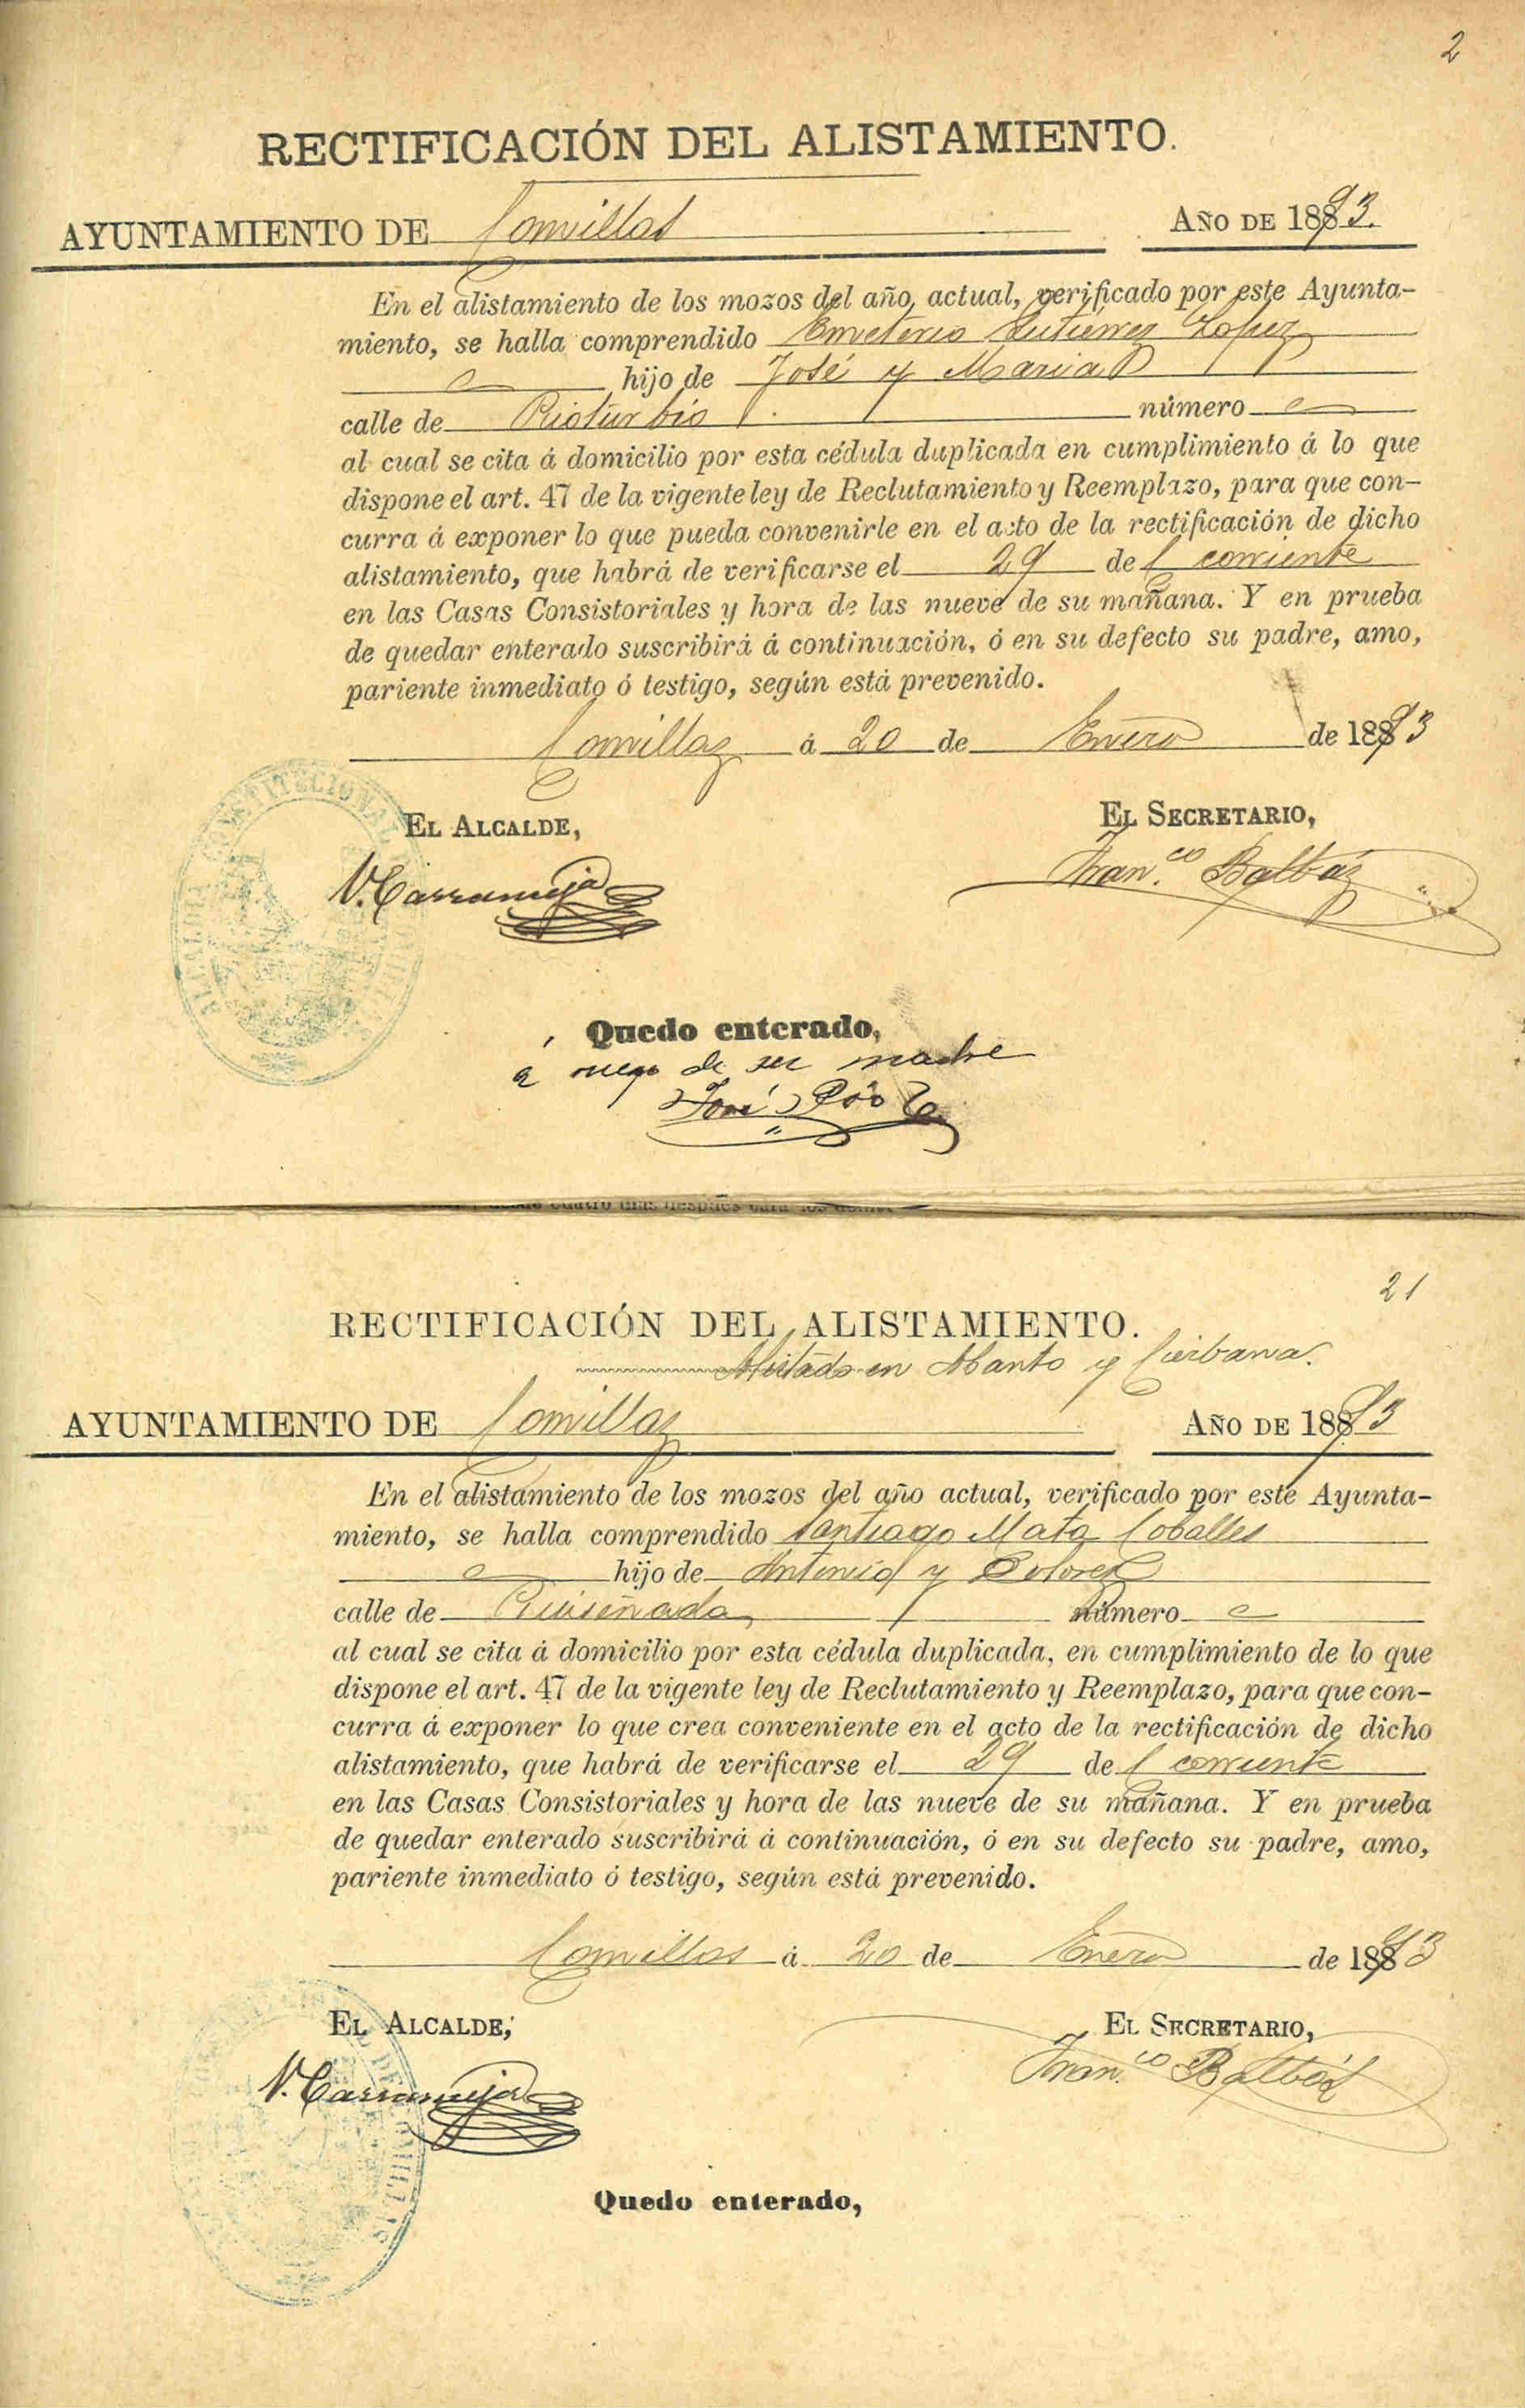 2
RECTIFICACIÓN DEL ALISTAMIENTO.
AYUNTAMIENTO DE Comillas AÑO DE 1893.
En el alistamiento de los mozos del año actual, verificado por este Ayunta-
miento, se halla comprendido Emeterio Gutierrez Lopez
hijo de José y Maria
calle de Rioturbio número
al cual se cita á domicilio por esta cédula duplicada en cumplimiento á lo que
dispone el art. 47 de la vigente ley de Reclutamiento y Reemplazo, para que con-
curra á exponer lo que pueda convenirle en el acto de la rectificación de dicho
alistamiento, que habrá de verificarse el 29 del corriente
en las Casas Consistoriales y hora de las nueve de su mañana. Y en prueba
de quedar enterado suscribirá á continuación, ó en su defecto su padre, amo,
pariente inmediato ó testigo, según está prevenido.
Comillas á 20 de Enero de 1893
EL ALCALDE, EL SECRETARIO,
Fran.co Balbás
Quedo enterado,
á ruego de su madre
José
cuatro dias despues para los
21
RECTIFICACIÓN DEL ALISTAMIENTO.
Alistado en Abanto y Cierbana.
AYUNTAMIENTO DE Comillas AÑO DE 1893
En el alistamiento de los mozos del año actual, verificado por este Ayunta-
miento, se halla comprendido Santiago Mata Coballes
hijo de Antonio y Dolores
calle de Ruiseñada número
al cual se cita á domicilio por esta cédula duplicada, en cumplimiento de lo que
dispone el art. 47 de la vigente ley de Reclutamiento y Reemplazo, para que con-
curra á exponer lo que crea conveniente en el acto de la rectificación de dicho
alistamiento, que habrá de verificarse el 29 del corriente
en las Casas Consistoriales y hora de las nueve de su mañana. Y en prueba
de quedar enterado suscribirá á continuación, ó en su defecto su padre, amo,
pariente inmediato ó testigo, según está prevenido.
Comillas á 20 de Enero de 1893
EL ALCALDE, EL SECRETARIO,
Fran.co Balbás
Quedo enterado,